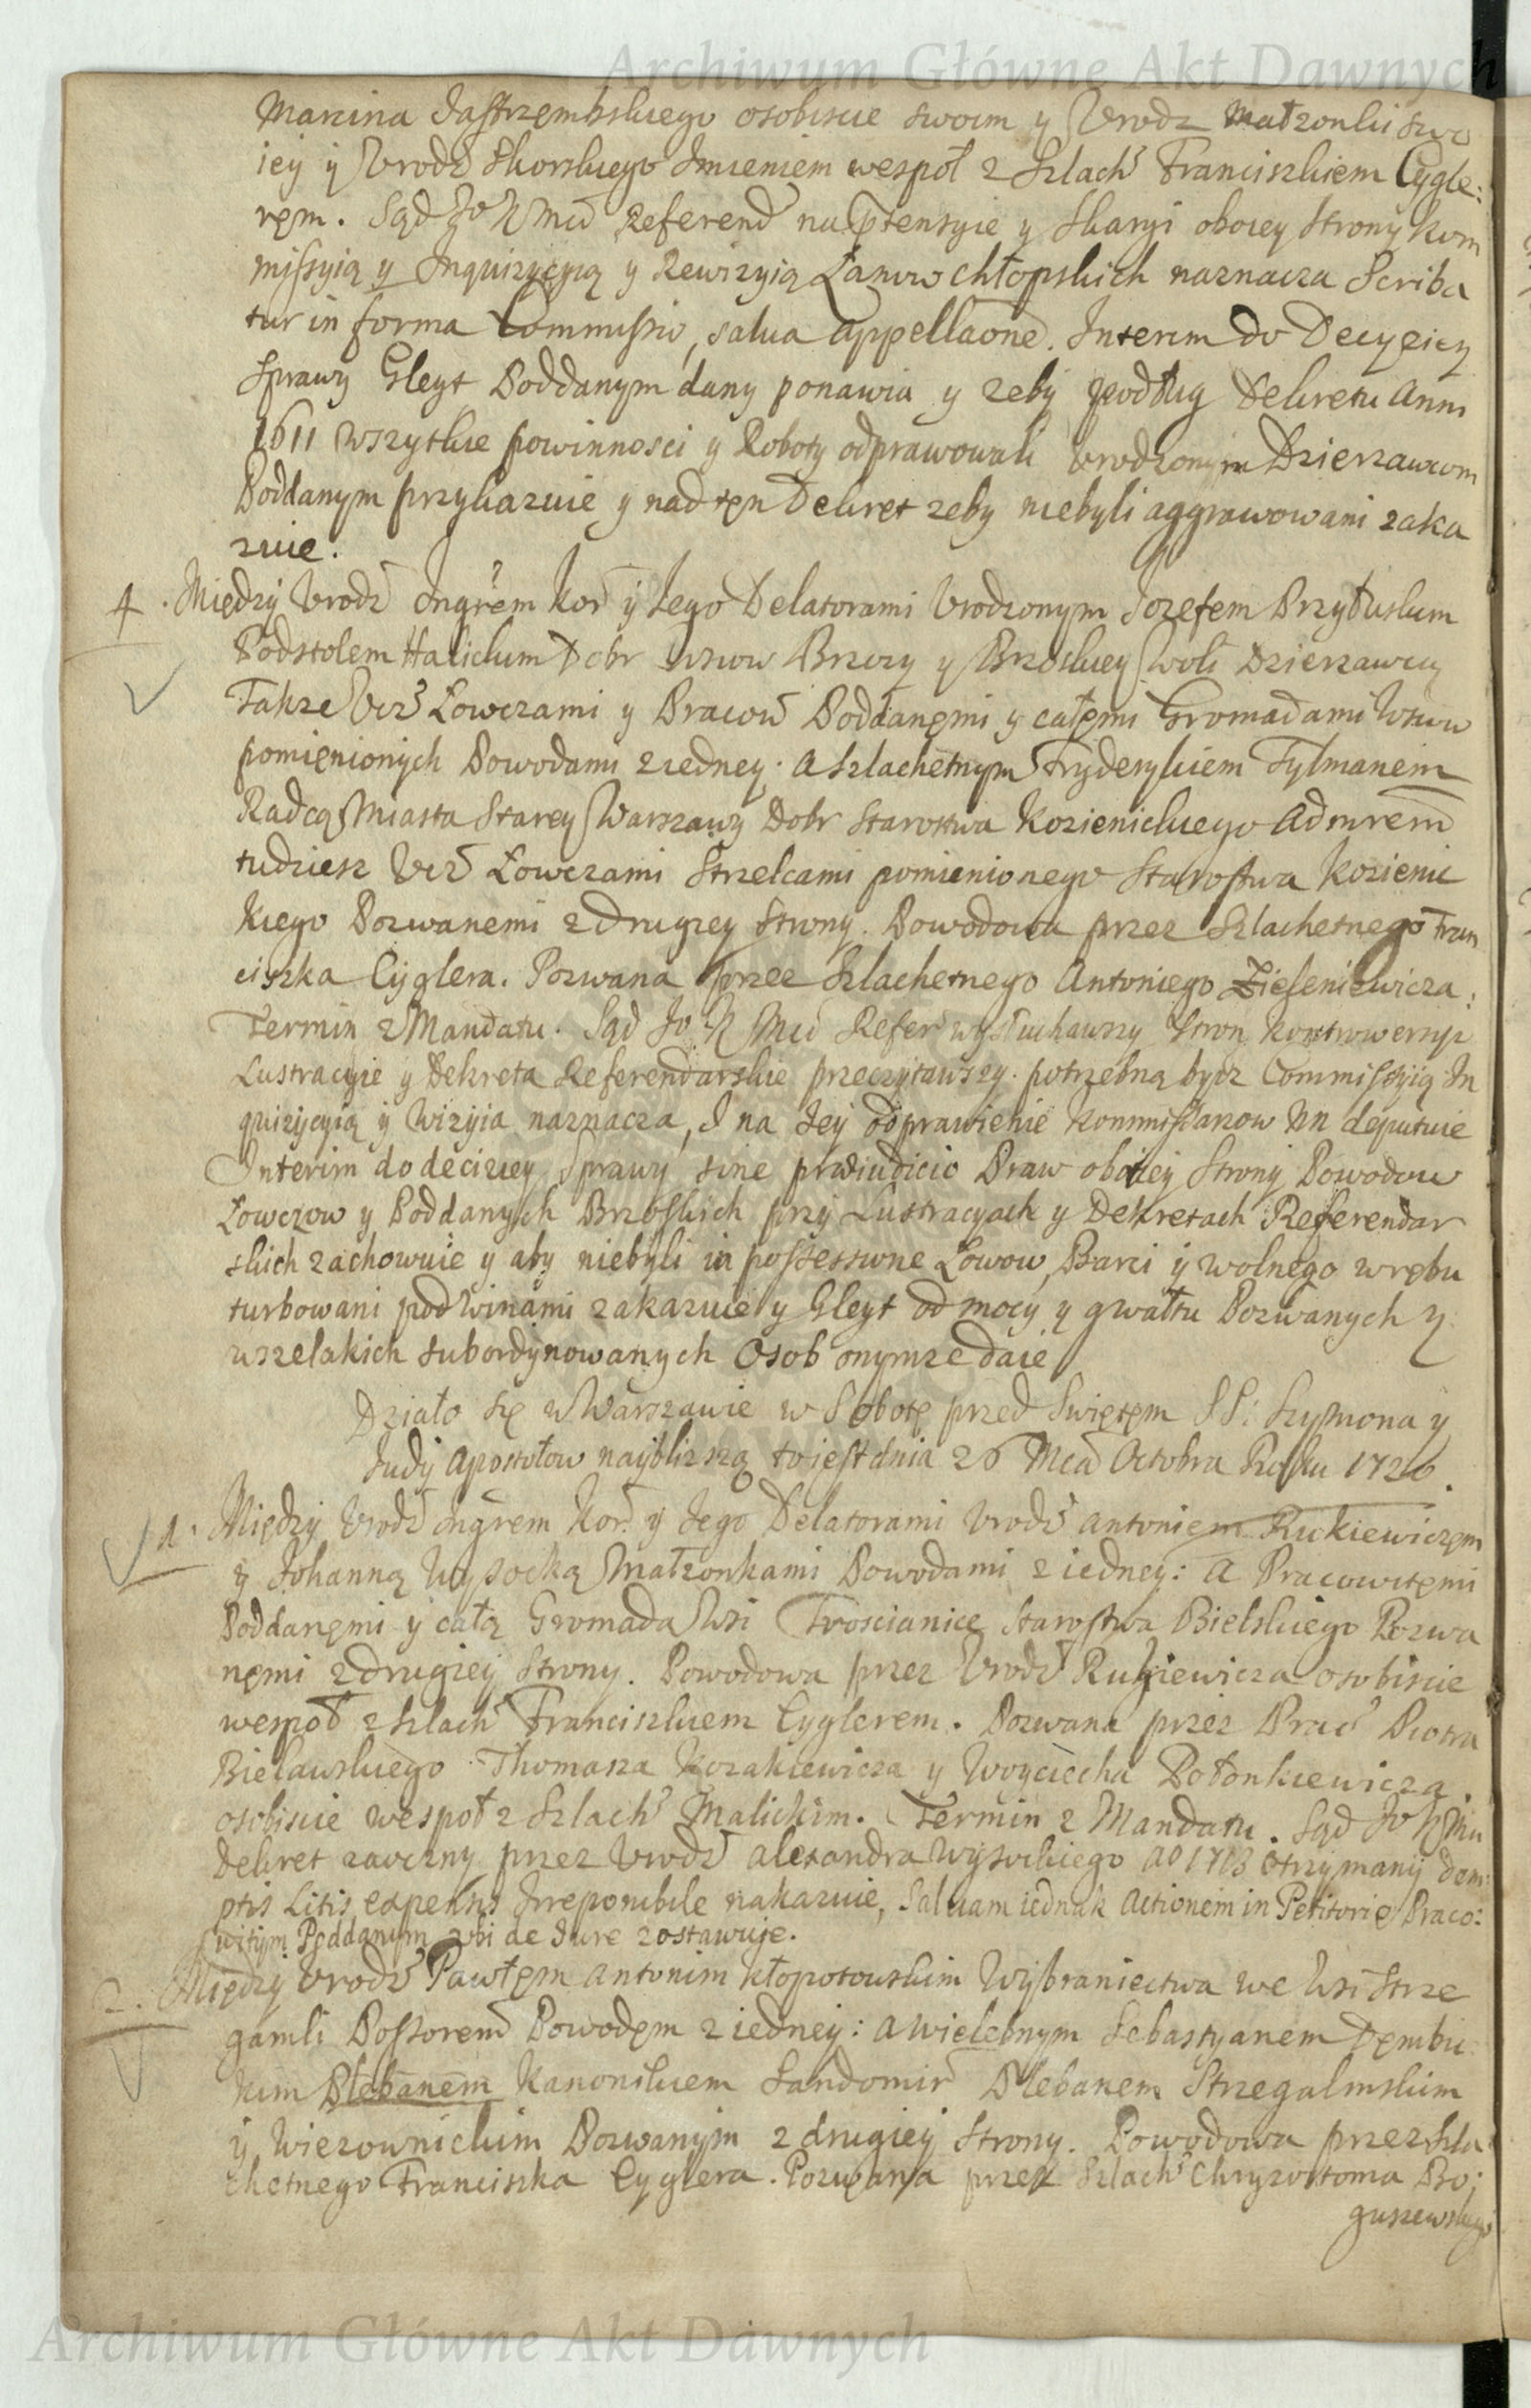 Archiwum Główne Akt Dawnych
Marcina Jastrzembskiego osobiscie swoim y Vrodz Małzonki swo
iey y Vrodź Skorskiego Imieniem wespoł z Szlach Franciszkiem Cygle:
rem. Sąd Jo Kmci Referend na Ptensyie y Skargi oboiey strony kom
missyią y Inquizycyią y Rewizyią Łanow chłopskich naznacza Scriba
tur in forma Commissio, salva appellaone. Interim do Decyziey
Sprawy Gleyt Poddanym dany ponawia y zeby podług Dekretu Anni
1611 wszytkie powinnosci y Roboty odprawowali Vrodzonym Dzierzawcom
Poddanym przykazuie y nad ten Dekret zeby niebyli aggrawowani zaka
zuie.
4. Między Vrodź Ingrem Kor y Jego Delatorami Vrodzonym Jozefem Przyłuskim
Podstolem Halickim Dobr wsiow Brzozy y Brzoskiey Woli Dzierzawcą
Takze Vcź Łowczami y Pracow Poddanemi y całemi Gromadami Wsiow
pomienionych Powodami z iedney. A Szlachetnym Fryderykiem Tylmanem
Radcą Miasta Starey Warszawy Dobr Starostwa Kozienickiego Admrem
tudziesz Vcź Łowczami Strzelcami pomienionego Starostwa Kozienic
kiego Pozwanemi z drugiey strony. Powodowa przez Szlachetnego Fran
ciszka Cyglera. Pozwana przez Szlachetnego Antoniego Zieleniewicza:
Termin z Mandatu. Sąd Jo K Mci Refer wysłuchawszy stron kontrowersyi
Lustracyie y Dekreta Referendarskie przeczytawszy. potrzebną bydz Commissyią In
quizycyią y wizyia naznacza, I na Jey odprawienie Kommissarzow NN deputuie
Interim do decizyey Sprawy sine praeiudicio Praw oboiey Strony Powodow
Łowczow y Poddanych Brzoskich przy Lustracyach y Dekretach Referendar
skich zachowuie y aby niebyli in possessione Łowow, Barci y wolnego wrębu
turbowani pod winami zakazuie y Gleyt od mocy y gwałtu Pozwanych y
wszelakich subordynowanych Osob onymze daie
Działo się w Warszawie w Sobotę przed Swiętem SS: Szymona y
Judy Apostołow naybliszszą to iest dnia 26 Mca Octobra Roku 1726.
1. Między Vrodź Ingrem Kor. y Jego Delatorami Vrodź Antoniem Rukiewiczem
y Johanną Wysocką Małzonkami Powodami z iedney: A Pracowitemi
Poddanemi y całą Gromada Wsi Troscianice Starostwa Bielskiego Pozwa
nemi z drugiey Strony. Powodowa przez Vrodź Rukiewicza osobiscie
wespoł z Szlach Franciszkiem Cyglerem. Pozwana przez Prac Piotra
Bielawskiego Thomasza Kozakiewicza y Woyciecha Połonkiewicza
osobiscie wespoł z Szlach Malickim. Termin z Mandatu. Sąd Jo K Mci
Dekret zaoczny przez Vrodź Alexandra Wysockiego Ao 1713 otrzymany dem
ptis Litis expensis Irreponibile nakazuie, Salvam iednak Actionem in Petitorio Praco:
witym Poddanym ubi de Jure zostawuje.
2. Między Vrodź Pawłem Antonim Kłopotowskim Wybraniectwa we Wsi Strze
gamli Possorem Powodem z iedney: A Wielebnym Sebastyanem Dembic
kim Plebanem Kanonikiem Sandomir Plebanem Strzegalmskim
y Wierzownickim Pozwanym z drugiey Strony. Powodowa przez Szla
chetnego Franciszka Cyglera. Pozwana przez Szlach Chryzostoma Bo:
guszewskiego
Archiwum Główne Akt Dawnych